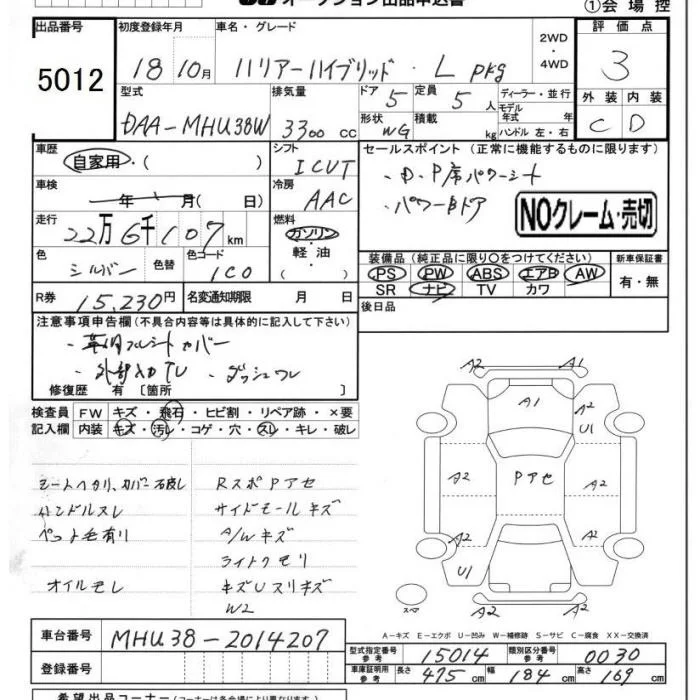 オークション出品申込書
①会場控
出品番号
5012
初度登録年月
18 10月
車名・グレード
ハリアーハイブリッド・L PKg
2WD
・
4WD
評価点
3
型式
DAA-MHU38W
排気量
3300 cc
ドア
5
定員
5人
形状
WG
積載
kg
ディーラー・並行
モデル
年式 年
ハンドル 左・右
外装 内装
C D
車歴
自家用・( )
シフト
ICVT
セールスポイント (正常に機能するものに限ります)
・D.P席パワーシート
・パワーBドア
NOクレーム・売切
車検
年 月( 日)
冷房
AAC
走行
22万6千107km
燃料
ガソリン
・
軽油
・
( )
色
シルバー
色替
色コード
1C0
装備品 (純正品に限り○をつけてください)
PS PW ABS エアB AW
SR ナビ TV カワ
新車保証書
有・無
R券
15,230円
名変通知期限 月 日
後日品
注意事項申告欄 (不具合内容等は具体的に記入して下さい)
・革調フルシートカバー
・外部入力TV ・ダッシュワレ
修復歴 有 〔箇所 〕
検査員
記入欄
FW キズ・飛石・ヒビ割・リペア跡・×要
内装 キズ・汚レ・コゲ・穴・スレ・キレ・破レ
シートヘタリ、カバー破レ
ハンドルスレ
ペット毛有リ
オイルモレ
RスポPアセ
サイドモールキズ
A/Wキズ
ライトクモリ
キズUスリキズ
W2
A2 A1
A1 A2
U1
A2 Pアセ A2
A2 A2
U1
A2 A2
スペア
A-キズ E-エクボ U-凹み W-補修跡 S-サビ C-腐食 XX-交換済
車台番号
MHU38-2014207
登録番号
型式指定番号
参考
15014
類別区分番号
参考
0030
車庫証明用
参考
長さ
475cm
幅
184cm
高さ
169cm
希望出品コーナー (コーナーは各会場により異なります)